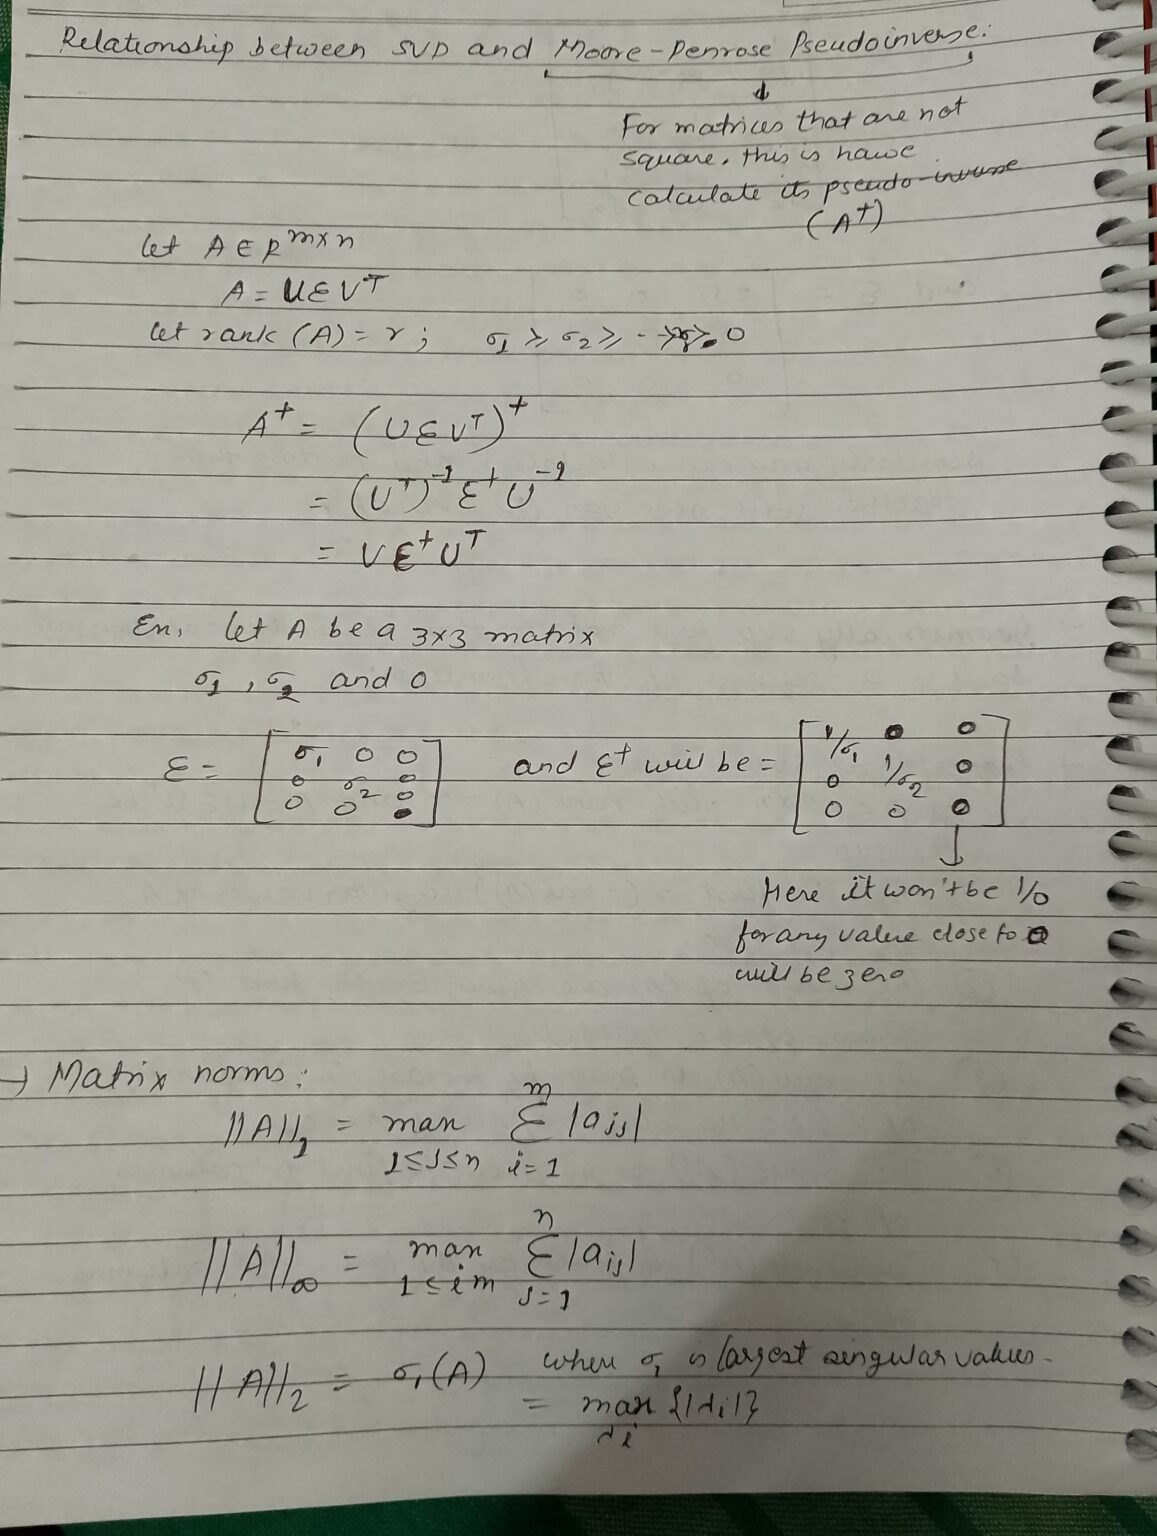 Relationship between SVD and Moore-Penrose Pseudoinverse:
↓
For matrices that are not
square, this is hawe
calculate its pseudo-inverse
(A⁺)
let A ∈ R^{m×n}
A = UΣVᵀ
let rank (A) = r ; σ₁ ≥ σ₂ ≥ - ≥ 0
A⁺ = (UΣVᵀ)⁺
= (Vᵀ)⁻¹ Σ⁺ U⁻¹
= VΣ⁺Uᵀ
En, let A be a 3×3 matrix
σ₁, σ₂ and 0
Σ = [σ₁ 0 0 and Σ⁺ will be = [1/σ₁ 0 0
0 σ₂ 0 0 1/σ₂ 0
0 0 0] 0 0 0]
↓
Here it won't be 1/0
for any value close to 0
will be zero
→ Matrix norms:
||A||₁ = max_{1≤j≤n} Σ_{i=1}^{m} |aᵢⱼ|
||A||∞ = max_{1≤i m} Σ_{j=1}^{n} |aᵢⱼ|
||A||₂ = σ₁(A) where σ₁ is largest singular values.
= max_{λi} {|λᵢ|}